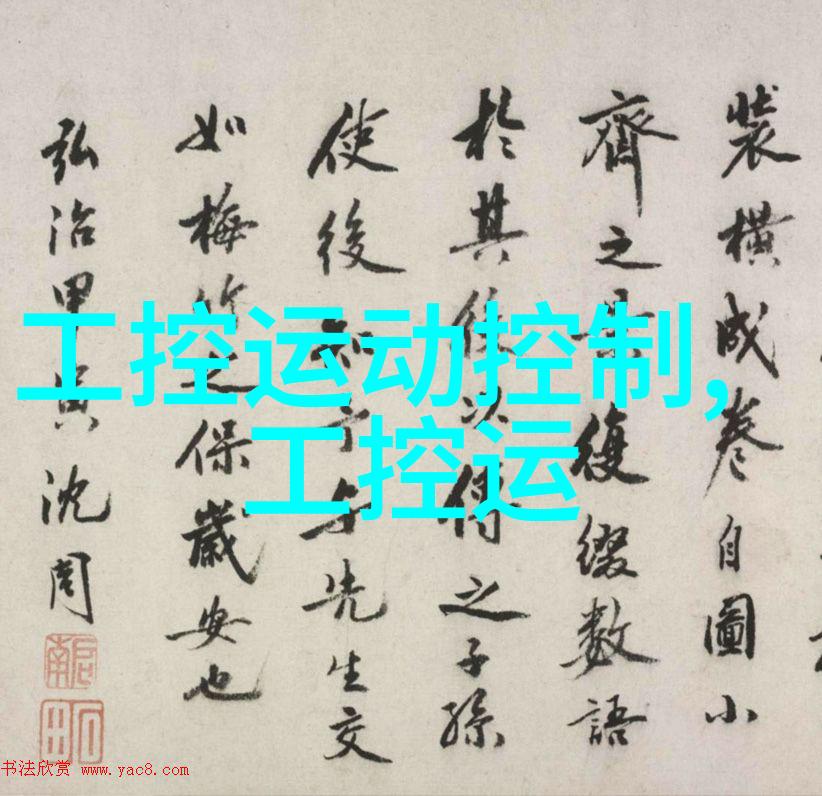 工控运动控制,
工控运
裝橫成卷自圖小
齊之復綴數語
於其後以之子孫
使後知予與先生交
如梅竹之保歲安也
弘治甲寅沈周
书法欣赏 www.yac8.com